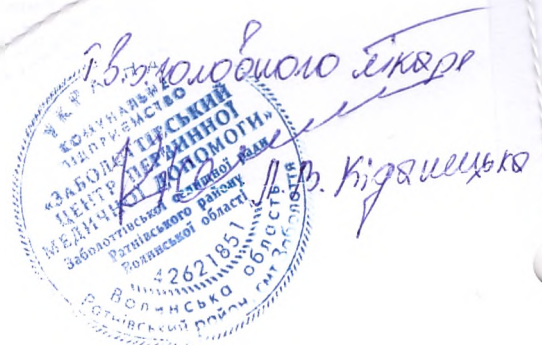 Т.в.о головного лікаря
Л.В. Кіданецька
УКРАЇНА
КОМУНАЛЬНЕ
ПІДПРИЄМСТВО
«ЗАБОЛОТТІВСЬКИЙ
ЦЕНТР ПЕРВИННОЇ
МЕДИЧНОЇ ДОПОМОГИ»
Заболоттівської селищної ради
Ратнівського району
Волинської області
42621851
Волинська область
Ратнівський район, смт Заболоття